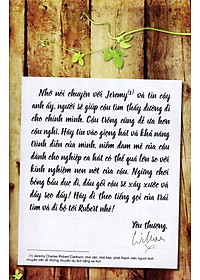 Nhớ nói chuyện với Jeremy(1) và tin cậy
anh ấy, người sẽ giúp cậu tìm thấy đường đi
cho chính mình. Cậu trông cùng dễ ưa hơn
cậu nghĩ. Hãy tin vào giọng hát và khả năng
trình diễn của mình, niềm đam mê của cậu
dành cho nghiệp ca hát có thể quá lớn so với
kinh nghiệm non nớt của cậu. Ngừng chơi
bóng bầu dục đi, đầu gối cậu sẽ xây xước và
đầy sẹo đấy! Hãy đi theo tiếng gọi của trái
tim và đi bộ tới Rubert nhé!
Yêu thương,
(1) Jeremy Charles Robert Clarkson: nhà văn, nhà báo, phát thanh viên người Anh
chuyên viết về những chuyến du lịch bằng xe hơi.